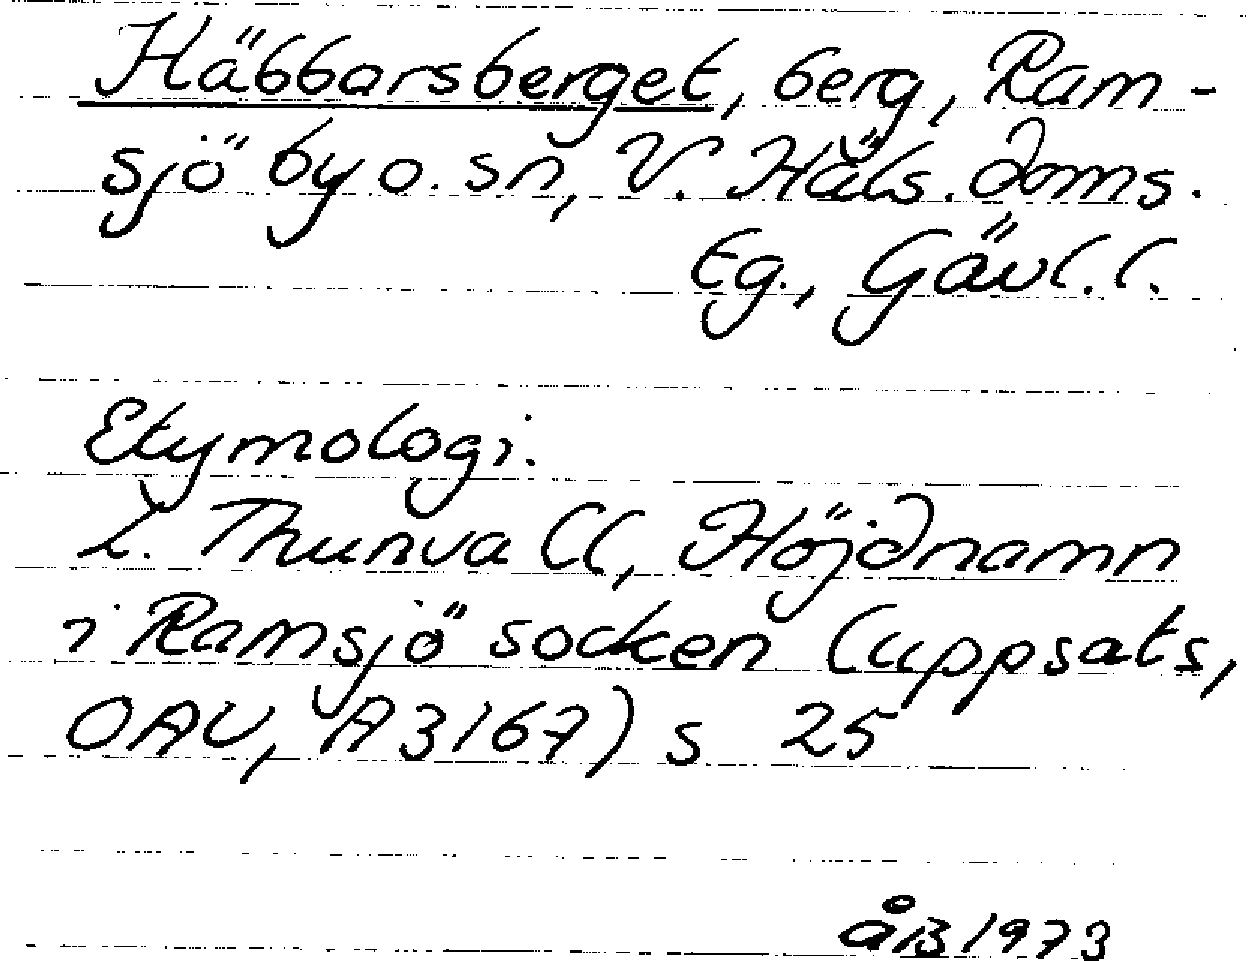 Häbbarsberget, berg, Ram-
sjö by o. sn, V. Häls. doms.
Eg., Gävl. l.
Etymologi.
L. Thunvall, Höjdnamn
i Ramsjö socken (uppsats,
OAU, A3167) s 25
åB 1973